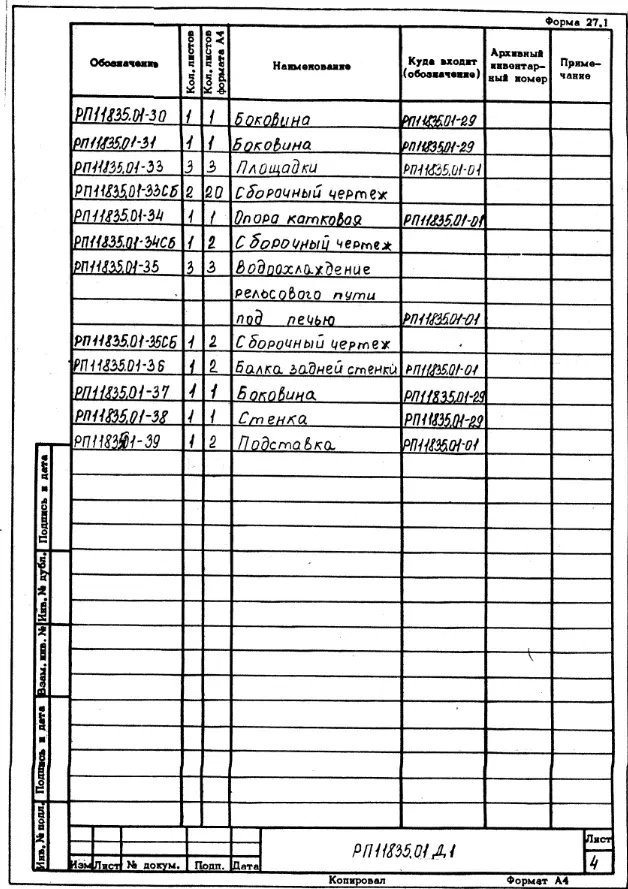 Форма 27.1
Обозначение Кол. листов Кол. листов формата А4 Наименование Куда входит (обозначение) Архивный инвентар- ный номер Приме- чание
РП11835.01-30 1 1 Боковина РП11835.01-29
РП11835.01-31 1 1 Боковина РП11835.01-29
РП11835.01-33 3 3 Площадки РП11835.01-01
РП11835.01-33СБ 2 20 Сборочный чертеж
РП11835.01-34 1 1 Опора катковая РП11835.01-01
РП11835.01-34СБ 1 2 Сборочный чертеж
РП11835.01-35 3 3 Водоохлаждение
рельсового пути
под печью РП11835.01-01
РП11835.01-35СБ 1 2 Сборочный чертеж
РП11835.01-36 1 2 Балка задней стенки РП11835.01-01
РП11835.01-37 1 1 Боковина РП11835.01-29
РП11835.01-38 1 1 Стенка РП11835.01-29
РП11835.01-39 1 2 Подставка РП11835.01-01
Подпись и дата
Инв. № дубл.
Взам. инв. №
Подпись и дата
Инв. № подл.
РП11835.01 Д.1
Лист
4
Изм Лист № докум. Подп. Дата
Копировал Формат А4